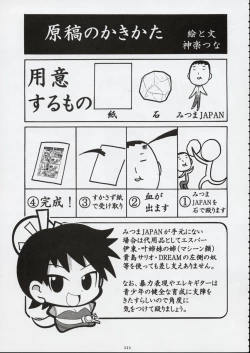 原稿のかきかた
絵と文
神楽つな
用意
するもの
紙
石
みつまJAPAN
④完成！
③すかさず紙
で受け取り
②血が
出ます
①みつま
JAPANを
石で殴ります
みつまJAPANが手元にない
場合は代用品としてエスパー
伊東・叶姉妹の姉(マシーン顔)
貴島サリオ・DREAMの左側の奴
等を使っても差し支えありません。
なお、暴力表現やエレキギターは
青少年の健全な育成に支障を
きたすらしいので角度に
気をつけて殴りましょう。